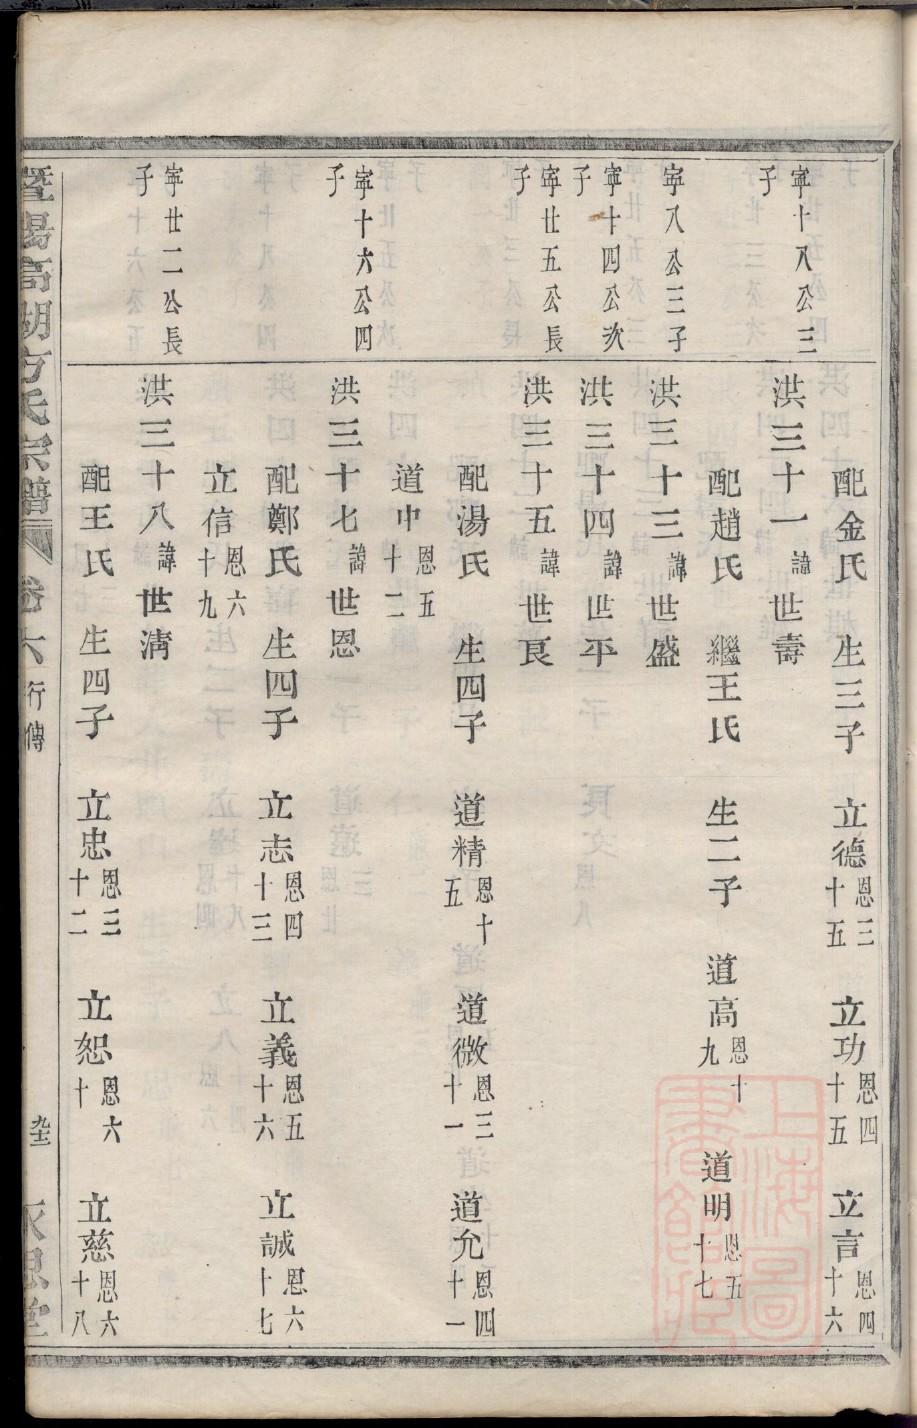 配金氏 生三子 立德恩三十五 立功恩四十五 立言恩四十六
寧十八公三子 洪三十一諱世壽
配趙氏 繼王氏 生二子 道高恩十九 道明恩五十七
寧八公三子 洪三十三諱世盛
寧十四公次子 洪三十四諱世平
寧廿五公長子 洪三十五諱世良
配湯氏 生四子 道精恩十五 道微恩三十一 道允恩四十一
道中恩五十二
寧十六公四子 洪三十七諱世恩
配鄭氏 生四子 立志恩四十三 立義恩五十六 立誠恩六十七
立信恩六十九
寧廿二公長子 洪三十八諱世清
配王氏 生四子 立忠恩三十二 立恕恩六十 立慈恩六十八
暨陽高湖方氏宗譜 卷六 行傳 永思堂
上海圖書館藏